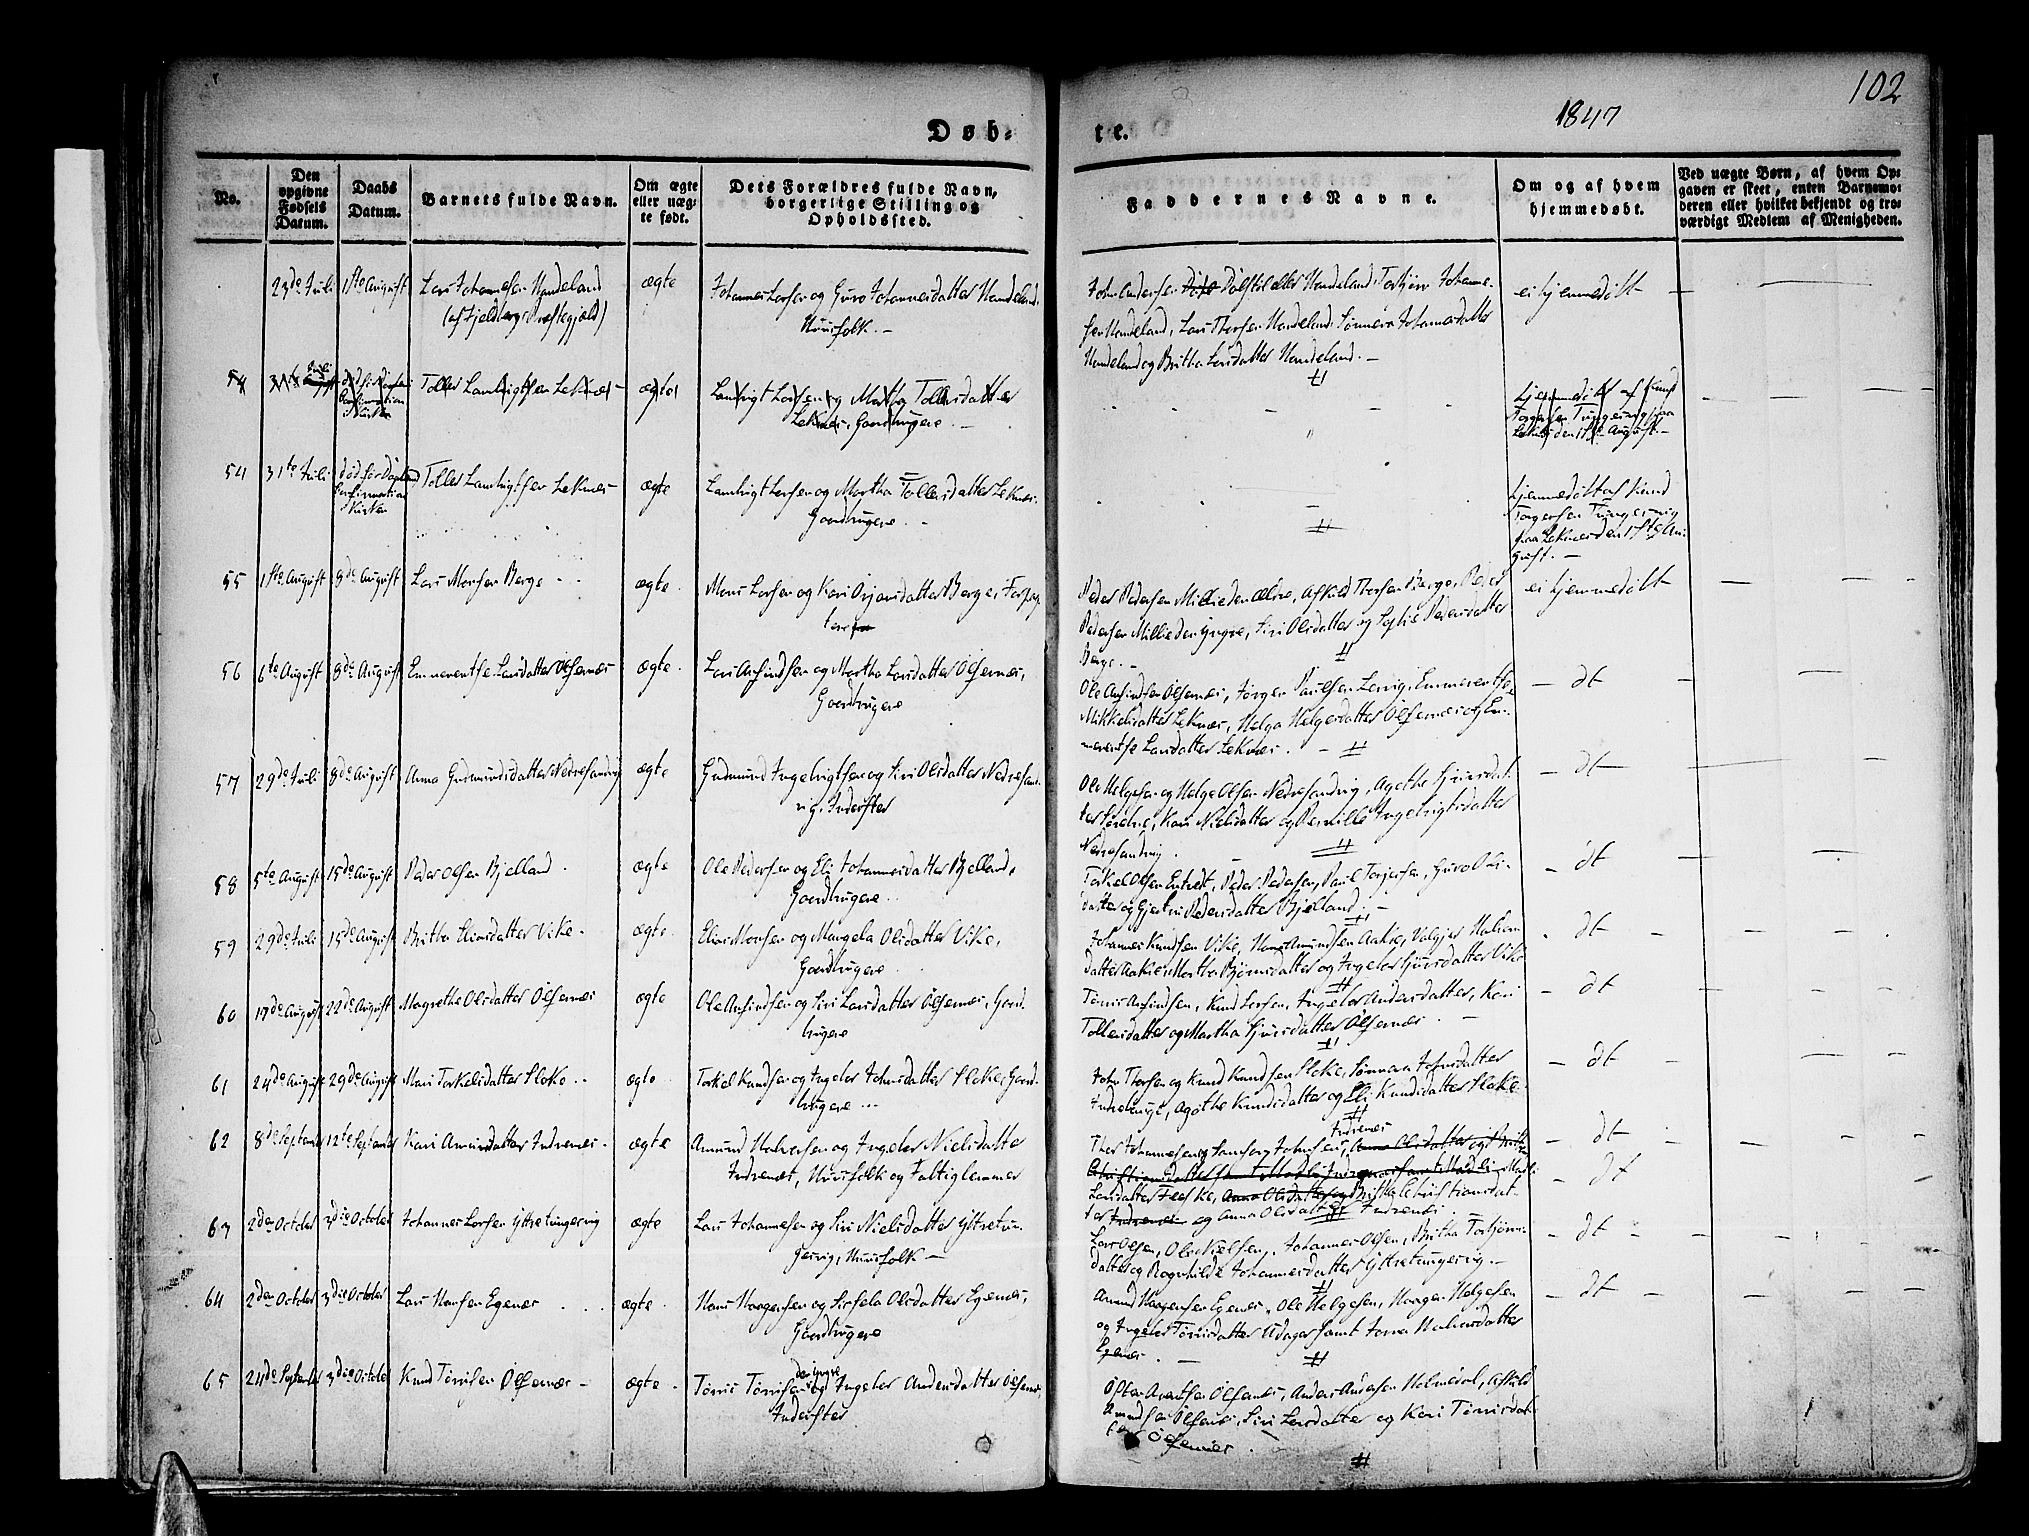 102
1847
Døb-
te.
No.
Den opgivne Fødsels Datum.
Daabs Datum.
Barnets fulde Navn.
Om ægte eller uæg- te født.
Dets Forældres fulde Navn, borgerlige Stilling og Opholdssted.
Faddernes Navne.
Om og af hvem hjemmedøbt.
Ved uægte Børn, af hvem Op- gaven er skeet, enten Barnemo- deren eller hvilket bekjendt og tro- værdigt Medlem af Menigheden.
23de Juli 1ste August Lars Johannesen Handeland ægte Johannes Larsen og Guro Johannesdatter Handeland,
(af Fjeldberg Præstegjæld) Huusfolk.
John Andersen Dølstøl eller Handeland, Torbjørn Johanne-
sen Handeland, Lars Thorsen Handeland, Sønneva Johannesdatter
Handeland og Britha Larsdatter Handeland.
ei hjemmedøbt
54 Tolles Lambrigtsen Leknes ægte Lambrigt Larsen og Martha Tollesdatter
Leknes, Gaardbrugere.
hjemmedøbt af Knud
Torgersen Tungesvig paa
Leknes den 1ste August.
54 31te Juli død før Daabens Tolles Lambrigtsen Leknes ægte Lambrigt Larsen og Martha Tollesdatter Leknes,
Confirmation
i Kirken
Gaardbrugere.
hjemmedøbt af Knud
Torgersen Tungesvig
paa Leknes den 1ste Au-
gust.
55 1ste August 8de August Lars Monsen Berge ægte Mons Larsen og Kari Ørjansdatter Berge, Forpag-
tere
Peder Pedersen Millie den Ældre, Askild Thorsen Berge, Peder
Pedersen Millie den Yngre, Siri Olsdatter og Sophie Pedersdatter
Berge.
ei hjemmedøbt
56 6te August 8de August Emmerentse Larsdatter Ølfernes ægte Lars Arfindsen og Martha Larsdatter Ølfernes,
Gaardbrugere
Ole Arfindsen Ølfernes, Jørgen Paulsen Lervig, Emmerentse
Mikkelsdatter Leknes, Helga Helgesdatter Ølfernes og Em-
merentse Larsdatter Leknes.
dt
57 29de Juli 8de August Anna Gudmundsdatter Nedresandvig ægte Gudmund Ingebrigtsen og Siri Olsdatter Nedresand-
vig, Inderster
Ole Helgesen og Helge Olsen Nedresandvig, Agothe Sjursdat-
ter, Kari Nielsdatter og Pernille Ingebrigtsdatter
Nedresandvig.
dt
58 5te August 15de August Peder Olsen Bjelland ægte Ole Pedersen og Eli Johannesdatter Bjelland,
Gaardbrugere.
Torkel Olsen, Peder Pedersen, Paul Torgersen, Guro Ols-
datter og Gjertrü Pedersdatter Bjelland.
dt
59 29de Juli 15de August Britha Eliasdatter Vike ægte Elias Monsen og Mangela Olsdatter Vike,
Gaardbrugere
Johannes Knudsen Vike, Hans Amundsen Aakre, Valgjer Halvors-
datter Aakre, Martha Bjørnsdatter og Ingebor Sjursdatter Vike
dt
60 17de August 22de August Magrethe Olsdatter Ølfernes ægte Ole Arfindsen og Siri Larsdatter Ølfernes, Gaard-
brugere
Tønnis Arfindsen, Knud Larsen, Ingebor Andersdatter, Kari
Tollesdatter og Martha Sjursdatter Ølfernes.
dt
61 24de August 29de August Mari Torkelsdatter Floke ægte Torkel Knudsen og Ingebor Johnsdatter Floke, Gaard-
brugere
John Thorsen og Knud Knudsen Floke, Sønneva Johnsdatter
Agothe Knudsdatter og Eli Knudsdatter Floke.
dt
62 8de September 12te September Kari Amundsdatter Indrenes ægte Amund Halvorsen og Ingebor Nielsdatter
Indrenes, Huusfolk og Fattiglemmer
Indrenes
Thor Johannesen og
Larsdatter, Britha Christiansdat-
ter og Anna Olsdatter Indrenes.
dt
dt
63 2den October 3die October Johannes Larsen Yttretungesvig ægte Lars Johannesen og Siri Nielsdatter Yttretun-
gesvig, Huusfolk
Lars Olsen, Ole Nielsen, Johannes Olsen, Britha Torbjørns-
datter og Ragnhilde Johannesdatter Yttretungesvig.
dt
64 2den October 3die October Lars Hansen Egenes ægte Hans Haagensen og Sirsela Olsdatter Egenes,
Gaardbrugere
Amund Haagensen Egenes, Ole Helgesen, Haagen Helgesen
og Ingebor Tønnisdatter samt Halvorsdatter
Egenes.
dt
65 24de September 3die October Knud Tønnisen Ølfernes ægte Tønnis Tønnisen den yngre og Ingebor Andersdatter Ølfernes,
Inderster
Ølfernes, Anders Andersen, Askild
Amundsen Ølfernes, Siri Larsdatter og Kari Tønnisdat-
ter Ølfernes.